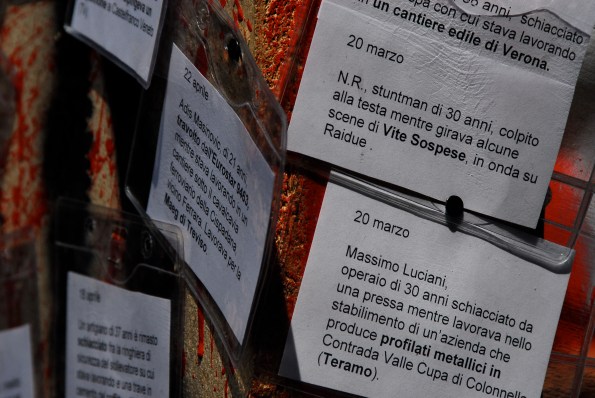 a Castelfranco Veneto
con cui stava lavorando
in un cantiere edile di Verona.
20 marzo
N.R., stuntman di 30 anni, colpito
alla testa mentre girava alcune
scene di Vite Sospese, in onda su
Raidue.
20 marzo
Massimo Luciani,
operaio di 30 anni schiacciato da
una pressa mentre lavorava nello
stabilimento di un'azienda che
produce profilati metallici in
Contrada Valle Cupa di Colonnella
(Teramo).
22 aprile
Adis Masinovic, di 21 anni
travolto dall'Eurostar 9463,
mentre stava lavorando in un
cantiere sotto il cavalcavia
ferroviario della Cispadana
vicino Ferrara. Lavorava per la
Meig di Treviso.
18 aprile
Un artigiano di 37 anni è rimasto
schiacciato tra la ringhiera di
sicurezza del sollevatore su cui
stava lavorando e una trave in